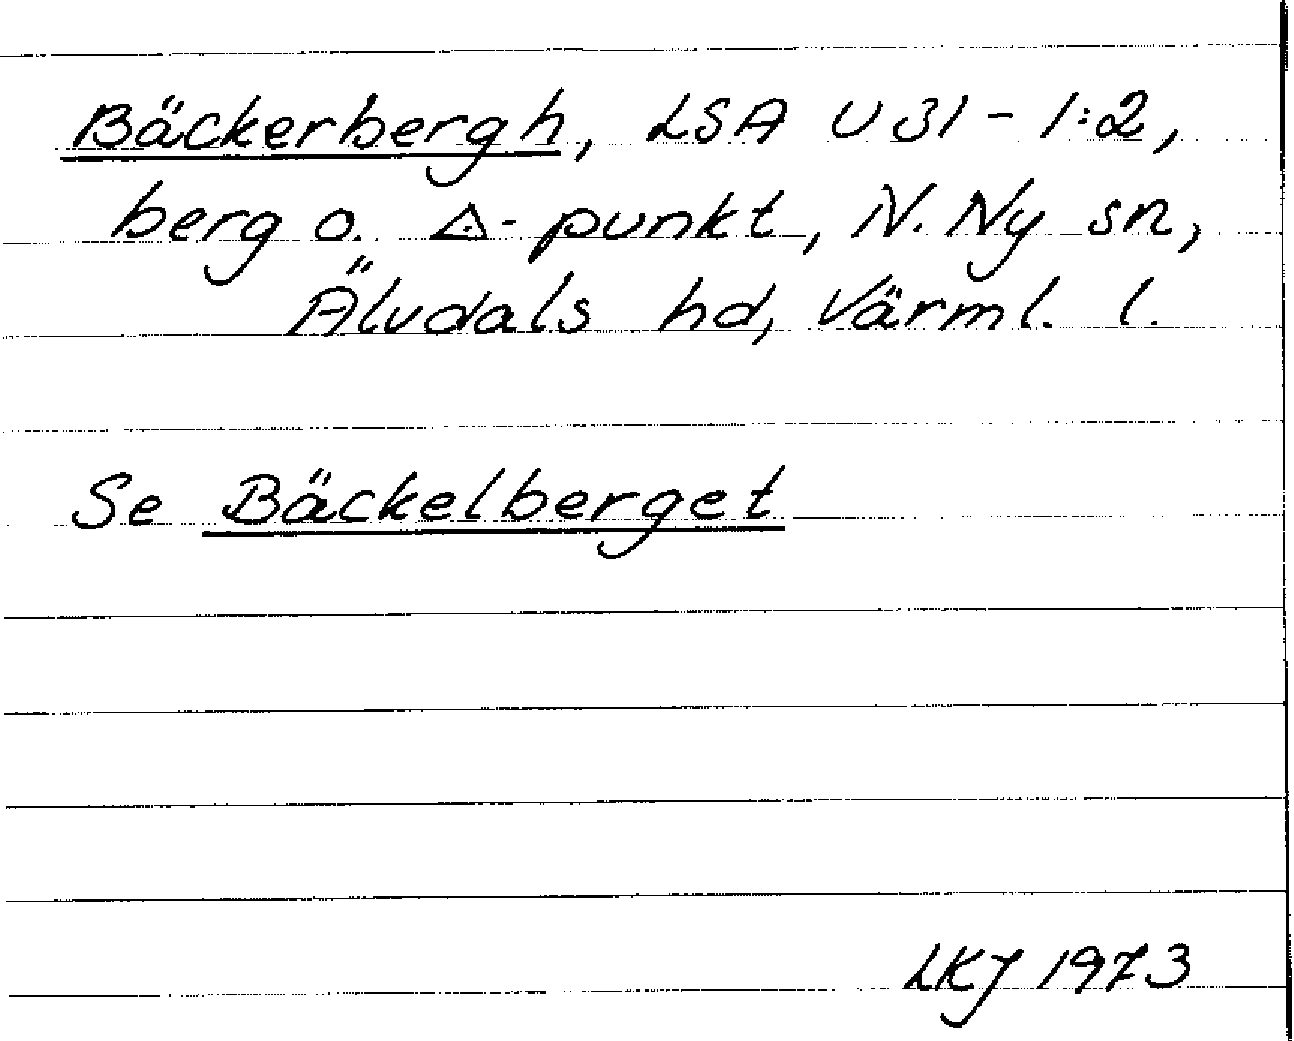 Bäckerbergh, LSA U31-1:2,
berg o. △-punkt, N. Ny sn,
Älvdals hd, Värml. l.
Se Bäckelberget
LKJ 1973